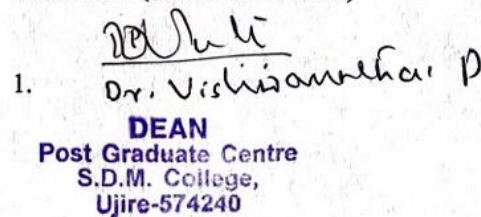 1.
Dr. Vishwanatha P
DEAN
Post Graduate Centre
S.D.M. College,
Ujire-574240